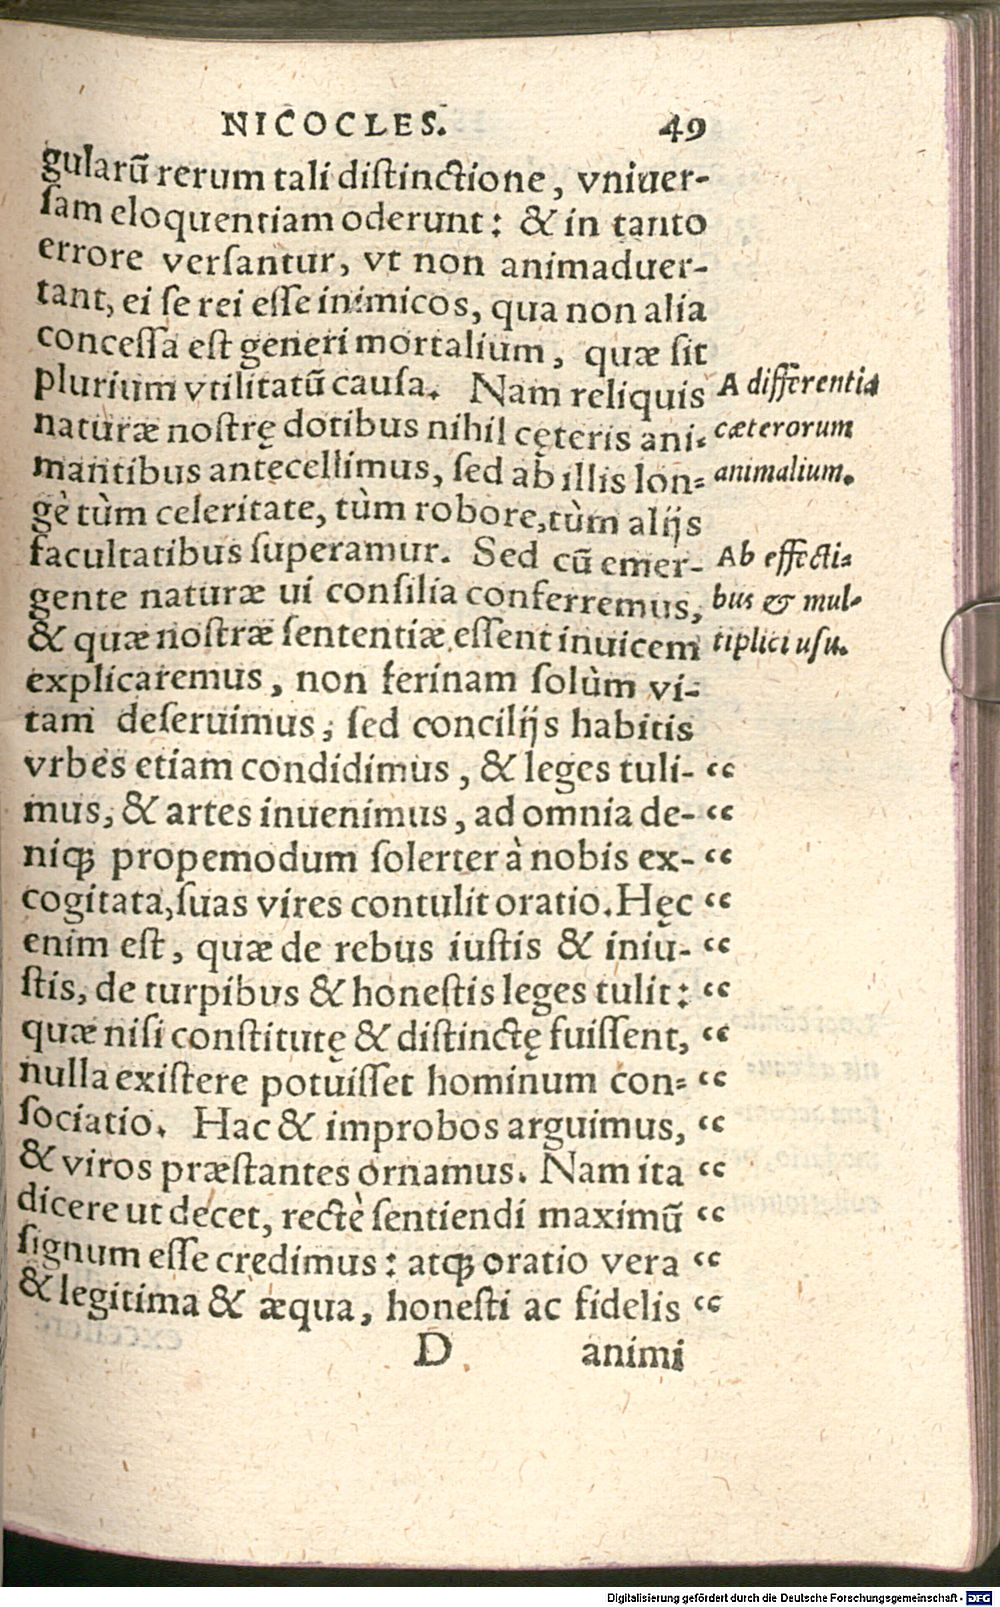 NICOCLES. 49
gularũ rerum tali distinctione, vniuer-
sam eloquentiam oderunt: & in tanto
errore versantur, vt non animaduer-
tant, ei se rei esse inimicos, qua non alia
concessa est generi mortalium, quæ sit
plurium vtilitatũ causa. Nam reliquis
A differentia
naturæ nostrę dotibus nihil cęteris ani-
cæterorum
mantibus antecellimus, sed ab illis lon-
animalium.
gè tùm celeritate, tùm robore, tùm alijs
facultatibus superamur. Sed cũ emer-
Ab effecti-
gente naturæ ui consilia conferremus,
bus & mul-
& quæ nostræ sententiæ essent inuicem
tiplici usu.
explicaremus, non ferinam solùm vi-
tam deseruimus, sed concilijs habitis
vrbes etiam condidimus, & leges tuli- “
mus, & artes inuenimus, ad omnia de- “
niq́ꝫ propemodum solerter à nobis ex- “
cogitata, suas vires contulit oratio. Hęc “
enim est, quæ de rebus iustis & iniu- “
stis, de turpibus & honestis leges tulit: “
quæ nisi constitutę & distinctę fuissent, “
nulla existere potuisset hominum con- “
sociatio. Hac & improbos arguimus, “
& viros præstantes ornamus. Nam ita “
dicere ut decet, rectè sentiendi maximũ “
signum esse credimus: atq́ꝫ oratio vera “
& legitima & æqua, honesti ac fidelis “
D animi
Digitalisierung gefördert durch die Deutsche Forschungsgemeinschaft - DFG